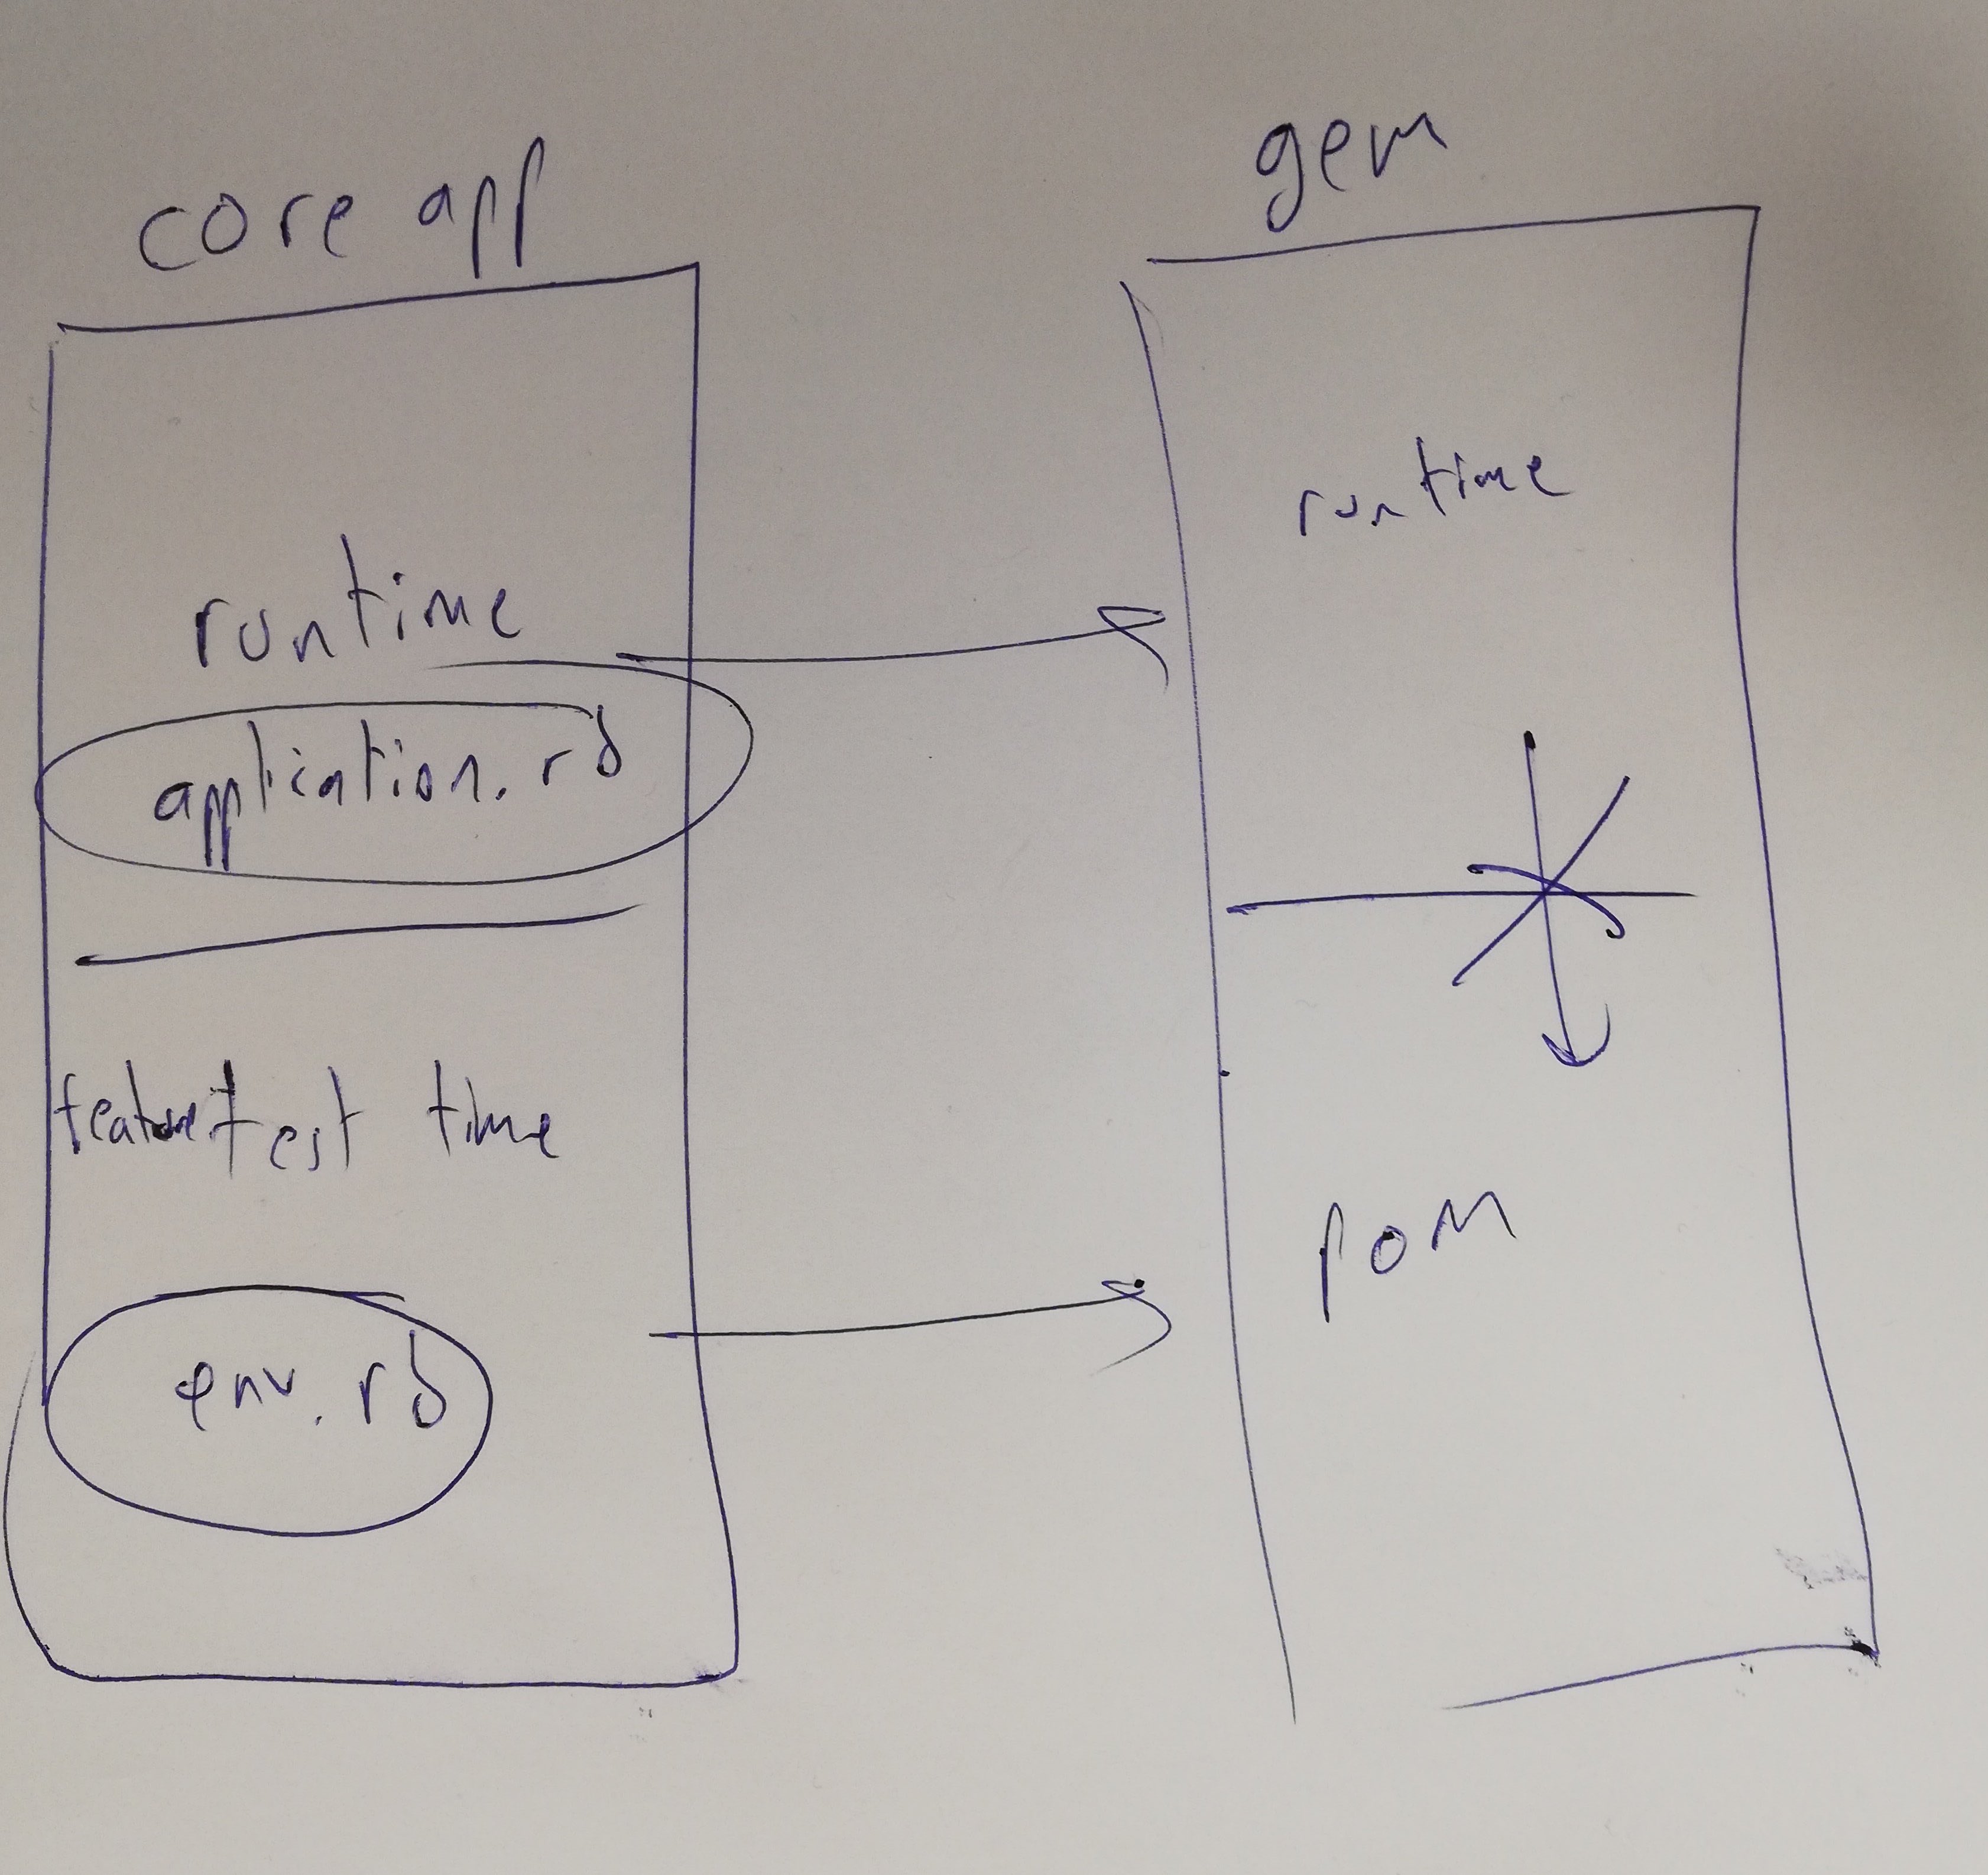 core app
runtime
application.rb
feature test time
env.rb
gem
runtime
POM